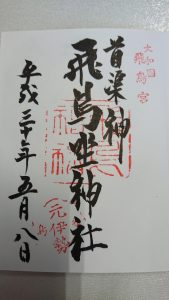 大和国
飛鳥宮
首渠神
飛鳥坐神社
元伊勢
平成三十年五月八日